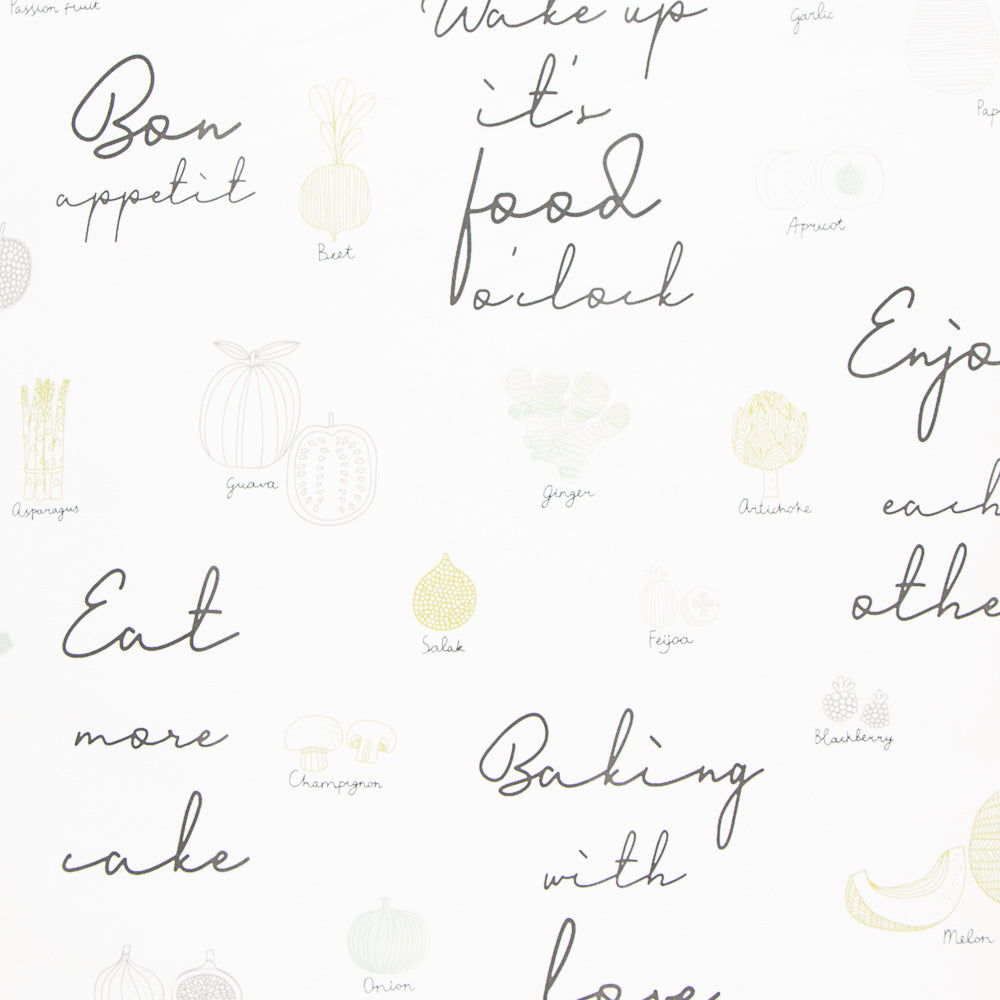 Passion fruit
Wake up
it's
food
o'clock
Garlic
Bon
appetit
Beet
Apricot
Enjo
each
othe
Asparagus
Guava
Ginger
Artichoke
Eat
more
cake
Salak
Feijoa
Blackberry
Champignon
Baking
with
love
Melon
Onion